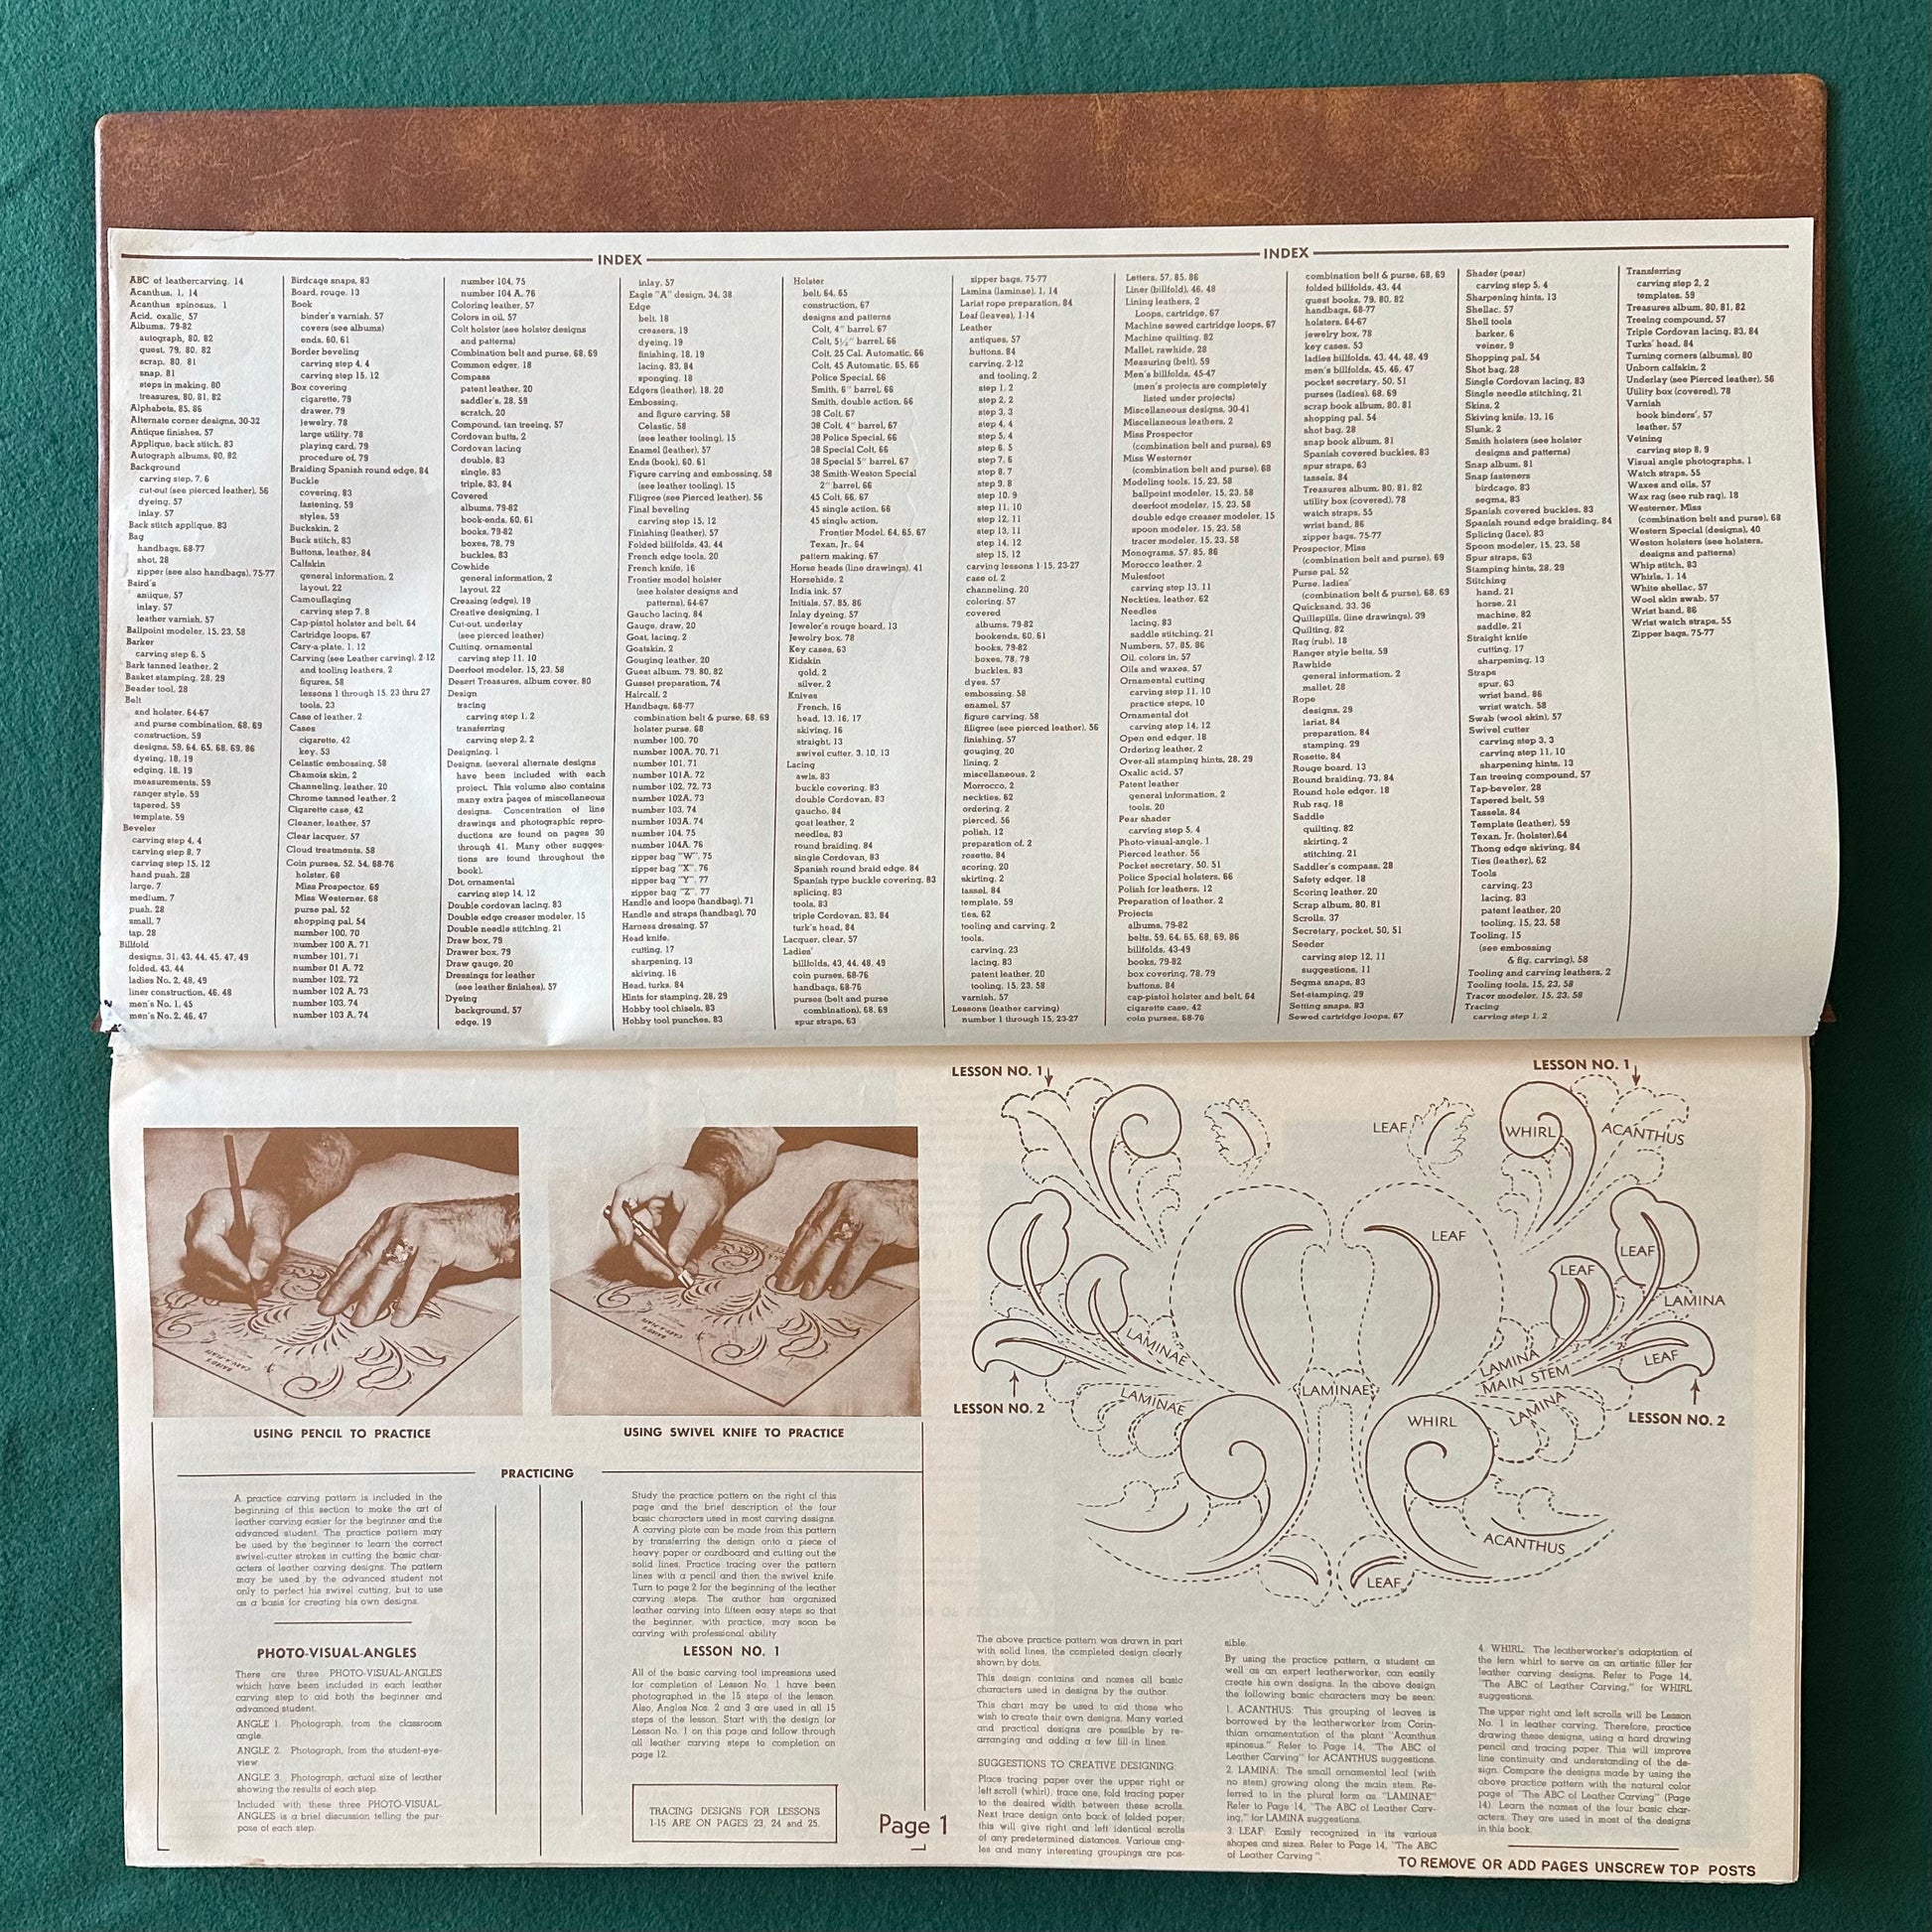 INDEX
INDEX
ABC of leathercarving, 14
Acanthus, 1, 14
Acanthus spinosus, 1
Acid, oxalic, 57
Albums, 79-82
autograph, 80, 82
guest, 79, 80, 82
scrap, 80, 81
snap, 81
steps in making, 80
treasures, 80, 81, 82
Alphabets, 85, 86
Alternate corner designs, 30-32
Antique finishes, 57
Applique, back stitch, 83
Autograph albums, 80, 82
Background
carving step, 7, 6
cut-out (see pierced leather), 56
dyeing, 57
inlay, 57
Back stitch applique, 83
Bag
handbags, 68-77
shot, 28
zipper (see also handbags), 75-77
Baird's
antique, 57
inlay, 57
leather varnish, 57
Ballpoint modeler, 15, 23, 58
Barker
carving step 6, 5
Bark tanned leather, 2
Basket stamping, 28, 29
Beader tool, 28
Belt
and holster, 64-67
and purse combination, 68, 69
construction, 59
designs, 59, 64, 65, 68, 69, 86
dyeing, 18, 19
edging, 18, 19
measurements, 59
ranger style, 59
tapered, 59
template, 59
Beveler
carving step 4, 4
carving step 8, 7
carving step 15, 12
hand push, 28
large, 7
medium, 7
push, 28
small, 7
tap, 28
Billfold
designs, 31, 43, 44, 45, 47, 49
folded, 43, 44
ladies No. 2, 48, 49
liner construction, 46, 48
men's No. 1, 45
men's No. 2, 46, 47
Birdcage snaps, 83
Board, rouge, 13
Book
binder's varnish, 57
covers (see albums)
ends, 60, 61
Border beveling
carving step 4, 4
carving step 15, 12
Box covering
cigarette, 79
drawer, 79
jewelry, 78
large utility, 78
playing card, 79
procedure of, 79
Braiding Spanish round edge, 84
Buckle
covering, 83
fastening, 59
styles, 59
Buckskin, 2
Buck stitch, 83
Buttons, leather, 84
Calfskin
general information, 2
layout, 22
Camouflaging
carving step 7, 8
Cap-pistol holster and belt, 64
Cartridge loops, 67
Carv-a-plate, 1, 12
Carving (see Leather carving), 2-12
and tooling leathers, 2
figures, 58
lessons 1 through 15, 23 thru 27
tools, 23
Case of leather, 2
Cases
cigarette, 42
key, 53
Celastic embossing, 58
Chamois skin, 2
Channeling, leather, 20
Chrome tanned leather, 2
Cigarette case, 42
Cleaner, leather, 57
Clear lacquer, 57
Cloud treatments, 58
Coin purses, 52, 54, 68-76
holster, 68
Miss Prospector, 69
Miss Westerner, 68
purse pal, 52
shopping pal, 54
number 100, 70
number 100 A, 71
number 101, 71
number 01 A, 72
number 102, 72
number 102 A, 73
number 103, 74
number 103 A, 74
number 104, 75
number 104 A, 76
Coloring leather, 57
Colors in oil, 57
Colt holster (see holster designs
and patterns)
Combination belt and purse, 68, 69
Common edger, 18
Compass
patent leather, 20
saddler's, 28, 59
scratch, 20
Compound, tan treeing, 57
Cordovan butts, 2
Cordovan lacing
double, 83
single, 83
triple, 83, 84
Covered
albums, 79-82
book-ends, 60, 61
books, 79-82
boxes, 78, 79
buckles, 83
Cowhide
general information, 2
layout, 22
Creasing (edge), 19
Creative designing, 1
Cut-out, underlay
(see pierced leather)
Cutting, ornamental
carving step 11, 10
Deerfoot modeler, 15, 23, 58
Desert Treasures, album cover, 80
Design
tracing
carving step 1, 2
transferring
carving step 2, 2
Designing, 1
Designs, (several alternate designs
have been included with each
project. This volume also contains
many extra pages of miscellaneous
designs. Concentration of line
drawings and photographic repro-
ductions are found on pages 30
through 41. Many other sugges-
tions are found throughout the
book).
Dot, ornamental
carving step 14, 12
Double cordovan lacing, 83
Double edge creaser modeler, 15
Double needle stitching, 21
Draw box, 79
Drawer box, 79
Draw gauge, 20
Dressings for leather
(see leather finishes), 57
Dyeing
background, 57
edge, 19
inlay, 57
Eagle "A" design, 34, 38
Edge
belt, 18
creasers, 19
dyeing, 19
finishing, 18, 19
lacing, 83, 84
sponging, 18
Edgers (leather), 18, 20
Embossing,
and figure carving, 58
Celastic, 58
(see leather tooling), 15
Enamel (leather), 57
Ends (book), 60, 61
Figure carving and embossing, 58
(see leather tooling), 15
Filigree (see Pierced leather), 56
Final beveling
carving step 15, 12
Finishing (leather), 57
Folded billfolds, 43, 44
French edge tools, 20
French knife, 16
Frontier model holster
(see holster designs and
patterns), 64-67
Gaucho lacing, 84
Gauge, draw, 20
Goat, lacing, 2
Goatskin, 2
Gouging leather, 20
Guest album, 79, 80, 82
Gusset preparation, 74
Haircalf, 2
Handbags, 68-77
combination belt & purse, 68, 69
holster purse, 68
number 100, 70
number 100A, 70, 71
number 101, 71
number 101A, 72
number 102, 72, 73
number 102A, 73
number 103, 74
number 103A, 74
number 104, 75
number 104A, 76
zipper bag "W", 75
zipper bag "X", 76
zipper bag "Y", 77
zipper bag "Z", 77
Handle and loops (handbag), 71
Handle and straps (handbag), 70
Harness dressing, 57
Head knife,
cutting, 17
sharpening, 13
skiving, 16
Head, turks, 84
Hints for stamping, 28, 29
Hobby tool chisels, 83
Hobby tool punches, 83
Holster
belt, 64, 65
construction, 67
designs and patterns
Colt, 4" barrel, 67
Colt, 5½" barrel, 66
Colt, 25 Cal. Automatic, 66
Colt, 45 Automatic, 65, 66
Police Special, 66
Smith, 6" barrel, 66
Smith, double action, 66
38 Colt, 67
38 Colt, 4" barrel, 67
38 Police Special, 66
38 Special Colt, 66
38 Special 5" barrel, 67
38 Smith-Weston Special
2" barrel, 66
45 Colt, 66, 67
45 single action, 66
45 single action,
Frontier Model, 64, 65, 67
Texan, Jr., 64
pattern making, 67
Horse heads (line drawings), 41
Horsehide, 2
India ink, 57
Initials, 57, 85, 86
Inlay dyeing, 57
Jeweler's rouge board, 13
Jewelry box, 78
Key cases, 63
Kidskin
gold, 2
silver, 2
Knives
French, 16
head, 13, 16, 17
skiving, 16
straight, 13
swivel cutter, 3, 10, 13
Lacing
awls, 83
buckle covering, 83
double Cordovan, 83
gaucho, 84
goat leather, 2
needles, 83
round braiding, 84
single Cordovan, 83
Spanish round braid edge, 84
Spanish type buckle covering, 83
splicing, 83
tools, 83
triple Cordovan, 83, 84
turk's head, 84
Lacquer, clear, 57
Ladies'
billfolds, 43, 44, 48, 49
coin purses, 68-76
handbags, 68-76
purses (belt and purse
combination), 68, 69
spur straps, 63
zipper bags, 75-77
Lamina (laminae), 1, 14
Lariat rope preparation, 84
Leaf (leaves), 1-14
Leather
antiques, 57
buttons, 84
carving, 2-12
and tooling, 2
step 1, 2
step 2, 2
step 3, 3
step 4, 4
step 5, 4
step 6, 5
step 7, 6
step 8, 7
step 9, 8
step 10, 9
step 11, 10
step 12, 11
step 13, 11
step 14, 12
step 15, 12
carving lessons 1-15, 23-27
case of, 2
channeling, 20
coloring, 57
covered
albums, 79-82
bookends, 60, 61
books, 79-82
boxes, 78, 79
buckles, 83
dyes, 57
embossing, 58
enamel, 57
figure carving, 58
filigree (see pierced leather), 56
finishing, 57
gouging, 20
lining, 2
miscellaneous, 2
Morrocco, 2
neckties, 62
ordering, 2
pierced, 56
polish, 12
preparation of, 2
rosette, 84
scoring, 20
skirting, 2
tassel, 84
template, 59
ties, 62
tooling and carving, 2
tools,
carving, 23
lacing, 83
patent leather, 20
tooling, 15, 23, 58
varnish, 57
Lessons (leather carving)
number 1 through 15, 23-27
Letters, 57, 85, 86
Liner (billfold), 46, 48
Lining leathers, 2
Loops, cartridge, 67
Machine sewed cartridge loops, 67
Machine quilting, 82
Mallet, rawhide, 28
Measuring (belt), 59
Men's billfolds, 45-47
(men's projects are completely
listed under projects)
Miscellaneous designs, 30-41
Miscellaneous leathers, 2
Miss Prospector
(combination belt and purse), 69
Miss Westerner
(combination belt and purse), 68
Modeling tools, 15, 23, 58
ballpoint modeler, 15, 23, 58
deerfoot modeler, 15, 23, 58
double edge creaser modeler, 15
spoon modeler, 15, 23, 58
tracer modeler, 15, 23, 58
Monograms, 57, 85, 86
Morocco leather, 2
Mulesfoot
carving step 13, 11
Neckties, leather, 62
Needles
lacing, 83
saddle stitching, 21
Numbers, 57, 85, 86
Oil, colors in, 57
Oils and waxes, 57
Ornamental cutting
carving step 11, 10
practice steps, 10
Ornamental dot
carving step 14, 12
Open end edger, 18
Ordering leather, 2
Over-all stamping hints, 28, 29
Oxalic acid, 57
Patent leather
general information, 2
tools, 20
Pear shader
carving step 5, 4
Photo-visual-angle, 1
Pierced leather, 56
Pocket secretary, 50, 51
Police Special holsters, 66
Polish for leathers, 12
Preparation of leather, 2
Projects
albums, 79-82
belts, 59, 64, 65, 68, 69, 86
billfolds, 43-49
books, 79-82
box covering, 78, 79
buttons, 84
cap-pistol holster and belt, 64
cigarette case, 42
coin purses, 68-76
combination belt & purse, 68, 69
folded billfolds, 43, 44
guest books, 79, 80, 82
handbags, 68-77
holsters, 64-67
jewelry box, 78
key cases, 53
ladies billfolds, 43, 44, 48, 49
men's billfolds, 45, 46, 47
pocket secretary, 50, 51
purses (ladies), 68, 69
scrap book album, 80, 81
shopping pal, 54
shot bag, 28
snap book album, 81
Spanish covered buckles, 83
spur straps, 63
tassels, 84
Treasures album, 80, 81, 82
utility box (covered), 78
watch straps, 55
wrist band, 86
zipper bags, 75-77
Prospector, Miss
(combination belt and purse), 69
Purse pal, 52
Purse, ladies'
(combination belt & purse), 68, 69
Quicksand, 33, 36
Quillspills, (line drawings), 39
Quilting, 82
Rag (rub), 18
Ranger style belts, 59
Rawhide
general information, 2
mallet, 28
Rope
designs, 29
lariat, 84
preparation, 84
stamping, 29
Rosette, 84
Rouge board, 13
Round braiding, 73, 84
Round hole edger, 18
Rub rag, 18
Saddle
quilting, 82
skirting, 2
stitching, 21
Saddler's compass, 28
Safety edger, 18
Scoring leather, 20
Scrap album, 80, 81
Scrolls, 37
Secretary, pocket, 50, 51
Seeder
carving step 12, 11
suggestions, 11
Segma snaps, 83
Set-stamping, 29
Setting snaps, 83
Sewed cartridge loops, 67
Shader (pear)
carving step 5, 4
Sharpening hints, 13
Shellac, 57
Shell tools
barker, 6
veiner, 9
Shopping pal, 54
Shot bag, 28
Single Cordovan lacing, 83
Single needle stitching, 21
Skins, 2
Skiving knife, 13, 16
Slunk, 2
Smith holsters (see holster
designs and patterns)
Snap album, 81
Snap fasteners
birdcage, 83
segma, 83
Spanish covered buckles, 83
Spanish round edge braiding, 84
Splicing (lace), 83
Spoon modeler, 15, 23, 58
Spur straps, 63
Stamping hints, 28, 29
Stitching
hand, 21
horse, 21
machine, 82
saddle, 21
Straight knife
cutting, 17
sharpening, 13
Straps
spur, 63
wrist band, 86
wrist watch, 58
Swab (wool skin), 57
Swivel cutter
carving step 3, 3
carving step 11, 10
sharpening hints, 13
Tan treeing compound, 57
Tap-beveler, 28
Tapered belt, 59
Tassels, 84
Template (leather), 59
Texan, Jr. (holster),64
Thong edge skiving, 84
Ties (leather), 62
Tools
carving, 23
lacing, 83
patent leather, 20
tooling, 15, 23, 58
Tooling, 15
(see embossing
& fig. carving), 58
Tooling and carving leathers, 2
Tooling tools, 15, 23, 58
Tracer modeler, 15, 23, 58
Tracing
carving step 1, 2
Transferring
carving step 2, 2
templates, 59
Treasures album, 80, 81, 82
Treeing compound, 57
Triple Cordovan lacing, 83, 84
Turks' head, 84
Turning corners (albums), 80
Unborn calfskin, 2
Underlay (see Pierced leather), 56
Utility box (covered), 78
Varnish
book binders', 57
leather, 57
Veining
carving step 8, 9
Visual angle photographs, 1
Watch straps, 55
Waxes and oils, 57
Wax rag (see rub rag), 18
Westerner, Miss
(combination belt and purse), 68
Western Special (designs), 40
Weston holsters (see holsters,
designs and patterns)
Whip stitch, 83
Whirls, 1, 14
White shellac, 57
Wool skin swab, 57
Wrist band, 86
Wrist watch straps, 55
Zipper bags, 75-77
BAIRD'S
CARV-A-PLATE
BAIRD'S
CARV-A-PLATE
USING PENCIL TO PRACTICE
USING SWIVEL KNIFE TO PRACTICE
PRACTICING
A practice carving pattern is included in the
beginning of this section to make the art of
leather carving easier for the beginner and the
advanced student. The practice pattern may
be used by the beginner to learn the correct
swivel-cutter strokes in cutting the basic char-
acters of leather carving designs. The pattern
may be used by the advanced student not
only to perfect his swivel cutting, but to use
as a basis for creating his own designs.
PHOTO-VISUAL-ANGLES
There are three PHOTO-VISUAL-ANGLES
which have been included in each leather
carving step to aid both the beginner and
advanced student.
ANGLE 1. Photograph, from the classroom
angle.
ANGLE 2. Photograph, from the student-eye-
view.
ANGLE 3. Photograph, actual size of leather
showing the results of each step.
Included with these three PHOTO-VISUAL-
ANGLES is a brief discussion telling the pur-
pose of each step.
Study the practice pattern on the right of this
page and the brief description of the four
basic characters used in most carving designs.
A carving plate can be made from this pattern
by transferring the design onto a piece of
heavy paper or cardboard and cutting out the
solid lines. Practice tracing over the pattern
lines with a pencil and then the swivel knife.
Turn to page 2 for the beginning of the leather
carving steps. The author has organized
leather carving into fifteen easy steps so that
the beginner, with practice, may soon be
carving with professional ability
LESSON NO. 1
All of the basic carving tool impressions used
for completion of Lesson No. 1 have been
photographed in the 15 steps of the lesson.
Also, Angles Nos. 2 and 3 are used in all 15
steps of the lesson. Start with the design for
Lesson No. 1 on this page and follow through
all leather carving steps to completion on
page 12.
TRACING DESIGNS FOR LESSONS
1-15 ARE ON PAGES 23, 24 and 25.
Page 1
LESSON NO. 1
LESSON NO. 1
LEAF
WHIRL
ACANTHUS
LEAF
LEAF
LEAF
LAMINA
LAMINAE
LAMINA
LEAF
MAIN STEM
LAMINAE
LAMINAE
LAMINA
LESSON NO. 2
LESSON NO. 2
WHIRL
ACANTHUS
LEAF
The above practice pattern was drawn in part
with solid lines, the completed design clearly
shown by dots.
This design contains and names all basic
characters used in designs by the author.
This chart may be used to aid those who
wish to create their own designs. Many varied
and practical designs are possible by re-
arranging and adding a few fill-in lines.
SUGGESTIONS TO CREATIVE DESIGNING
Place tracing paper over the upper right or
left scroll (whirl), trace one, fold tracing paper
to the desired width between these scrolls.
Next trace design onto back of folded paper;
this will give right and left identical scrolls
of any predetermined distances. Various ang-
les and many interesting groupings are pos-
sible.
By using the practice pattern, a student as
well as an expert leatherworker, can easily
create his own designs. In the above design
the following basic characters may be seen:
1. ACANTHUS: This grouping of leaves is
borrowed by the leatherworker from Corin-
thian ornamentation of the plant "Acanthus
spinosus." Refer to Page 14, "The ABC of
Leather Carving" for ACANTHUS suggestions.
2. LAMINA: The small ornamental leaf (with
no stem) growing along the main stem. Re-
ferred to in the plural form as "LAMINAE"
Refer to Page 14, "The ABC of Leather Carv-
ing," for LAMINA suggestions.
3. LEAF: Easily recognized in its various
shapes and sizes. Refer to Page 14, "The ABC
of Leather Carving".
4. WHIRL: The leatherworker's adaptation of
the fern whirl to serve as an artistic filler for
leather carving designs. Refer to Page 14,
"The ABC of Leather Carving," for WHIRL
suggestions.
The upper right and left scrolls will be Lesson
No. 1 in leather carving. Therefore, practice
drawing these designs, using a hard drawing
pencil and tracing paper. This will improve
line continuity and understanding of the de-
sign. Compare the designs made by using the
above practice pattern with the natural color
page of "The ABC of Leather Carving" (Page
14). Learn the names of the four basic char-
acters. They are used in most of the designs
in this book.
TO REMOVE OR ADD PAGES UNSCREW TOP POSTS